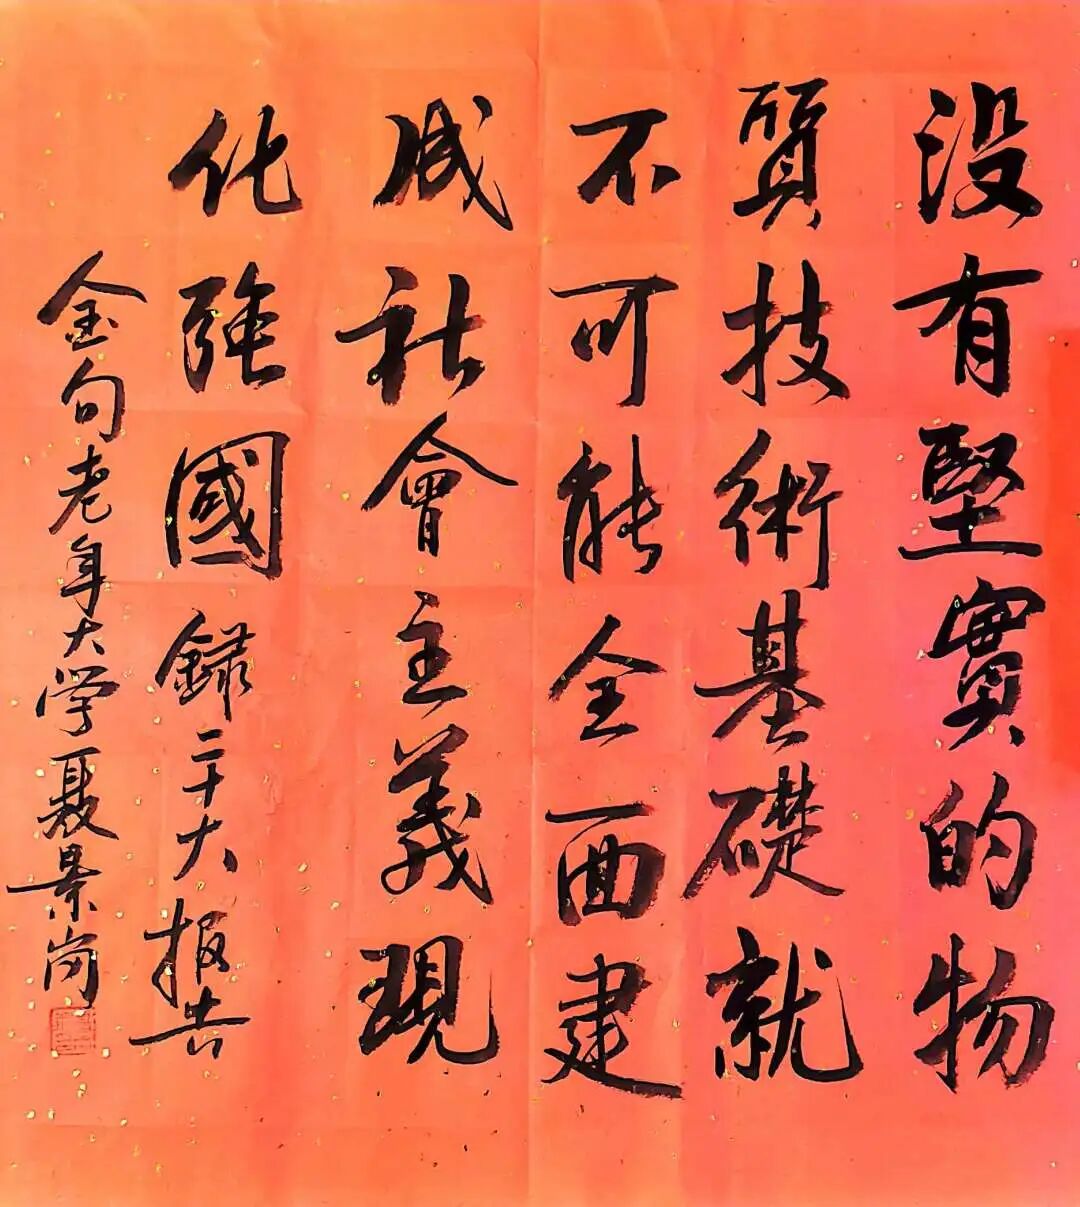 没有堅實的物
質技術基礎就
不可能全面建
成社會主義現
化强國 錄二十大报告
金句老年大学聂景岗